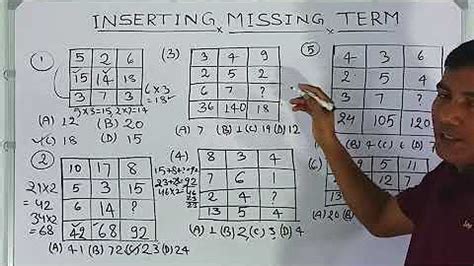 INSERTING MISSING TERM
①
5 2 6
15 14 18
3 7 3
6×3
=18
5×3=15, 2×7=14
(A) 12 (B) 20
(C) 18 (D) 15
②
10 17 8
5 3 15
6 14 ?
42 68 92
21×2
=42
34×2
=68
(A) 41 (B) 72 (C) 23 (D) 24
(3)
3 4 9
2 5 2
6 7 ?
36 140 18
(A) 7 (B) 1 (C) 19 (D) 12
(4)
8 3 4
7 6 1
2 4 ?
13 5 4
15+8+?=92
46×2
(A) 1 (B) 2, (C) 3, (D) 4
⑤
4 3 6
2 5 4
3 7 ?
24 105 120
(6)
5 11
(A) 20 (B)